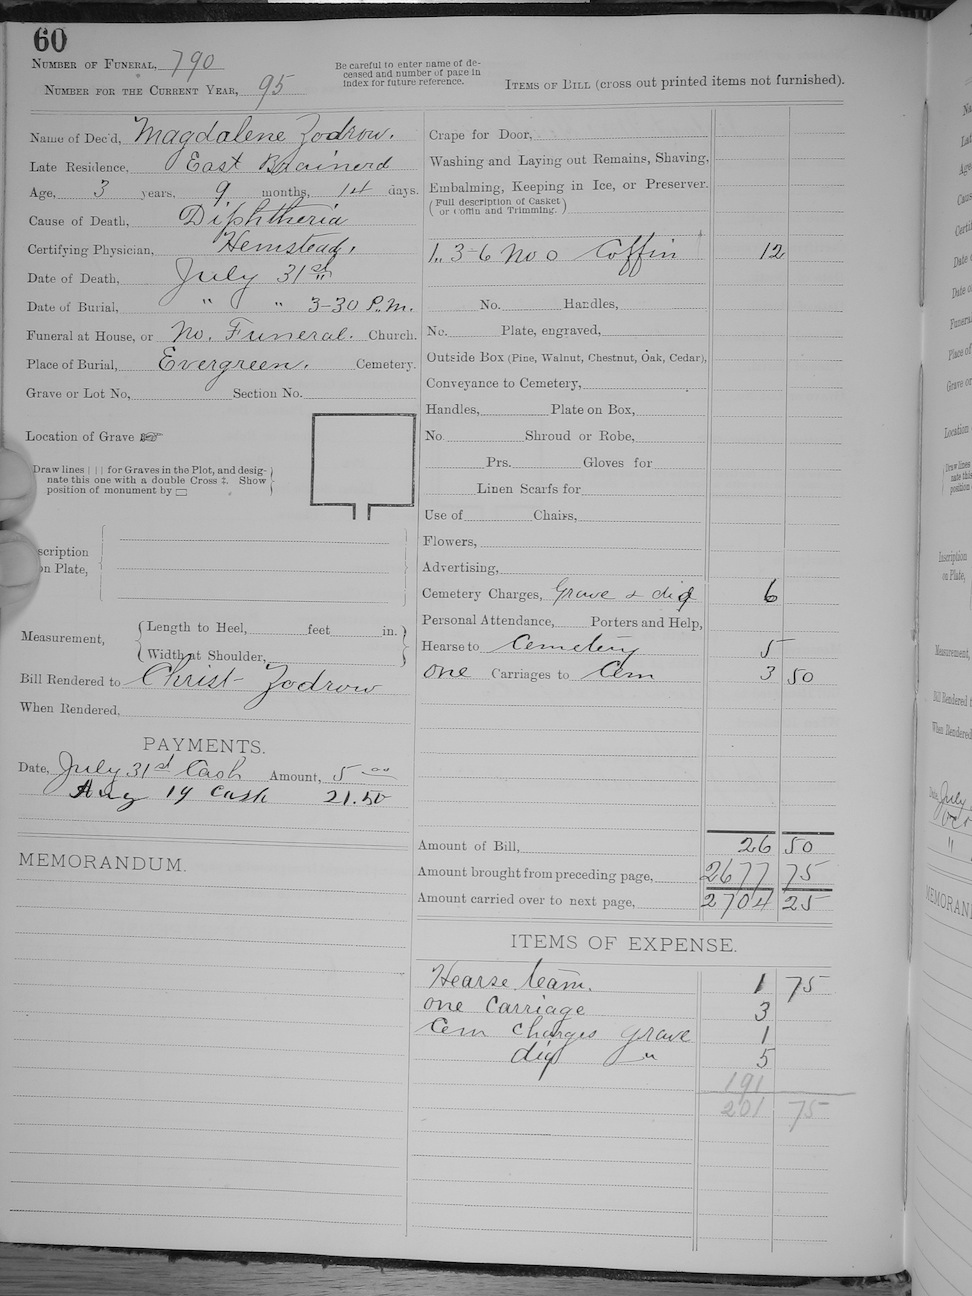 60
NUMBER OF FUNERAL, 790
NUMBER FOR THE CURRENT YEAR, 95
Be careful to enter name of de-
ceased and number of page in
index for future reference.
ITEMS OF BILL (cross out printed items not furnished).
Name of Dec'd, Magdalene Zodrow.
Late Residence, East Brainerd
Age, 3 years, 9 months, 14 days.
Cause of Death, Diphtheria
Certifying Physician, Hemstead,
Date of Death, July 31st
Date of Burial, " " 3-30 P.M.
Funeral at House, or No. Funeral. Church.
Place of Burial, Evergreen. Cemetery.
Grave or Lot No, Section No.
Location of Grave
Draw lines | | | for Graves in the Plot, and desig-
nate this one with a double Cross ‡. Show
position of monument by
scription
on Plate,
Measurement,
Length to Heel, feet in.
Width at Shoulder,
Bill Rendered to Christ Zodrow
When Rendered,
PAYMENTS.
Date, July 31st Cash Amount, 5 00
Aug 19 Cash 21.50
MEMORANDUM.
Crape for Door,
Washing and Laying out Remains, Shaving,
Embalming, Keeping in Ice, or Preserver.
(Full description of Casket
or Coffin and Trimming.)
1,, 3-6 No 0 Coffin 12
No. Handles,
No. Plate, engraved,
Outside Box (Pine, Walnut, Chestnut, Oak, Cedar),
Conveyance to Cemetery,
Handles, Plate on Box,
No. Shroud or Robe,
Prs. Gloves for
Linen Scarfs for
Use of Chairs,
Flowers,
Advertising,
Cemetery Charges, Grave & dig 6
Personal Attendance, Porters and Help,
Hearse to Cemetery 5
One Carriages to Cem 3 50
Amount of Bill, 26 50
Amount brought from preceding page, 2677 75
Amount carried over to next page, 2704 25
ITEMS OF EXPENSE.
Hearse team. 1 75
One Carriage 3
Cem Charges Grave 1
dig " 5
191
201 75